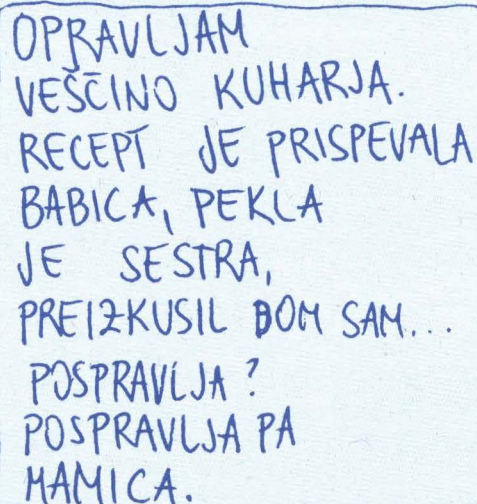 OPRAVLJAM
VEŠČINO KUHARJA.
RECEPT JE PRISPEVALA
BABICA, PEKLA
JE SESTRA,
PREIZKUSIL BOM SAM...
POSPRAVLJA?
POSPRAVLJA PA
MAMICA.